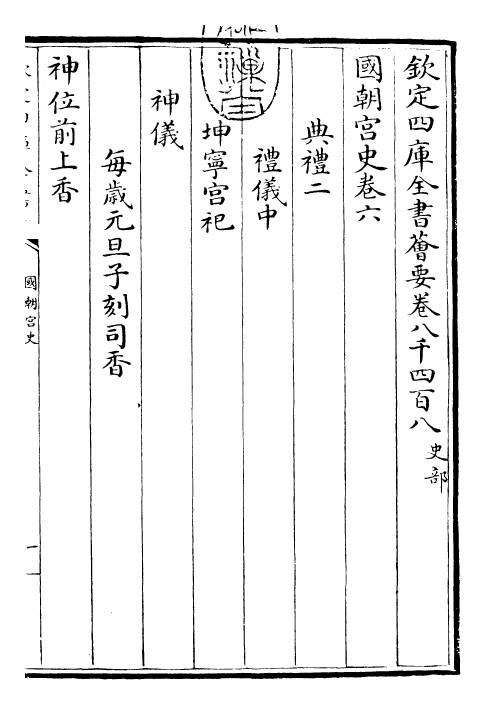 欽定四庫全書薈要卷八千四百八 史部
國朝宮史卷六
典禮二
禮儀中
坤寧宮祀
神儀
每歲元旦子刻司香
神位前上香
國朝宮史
一